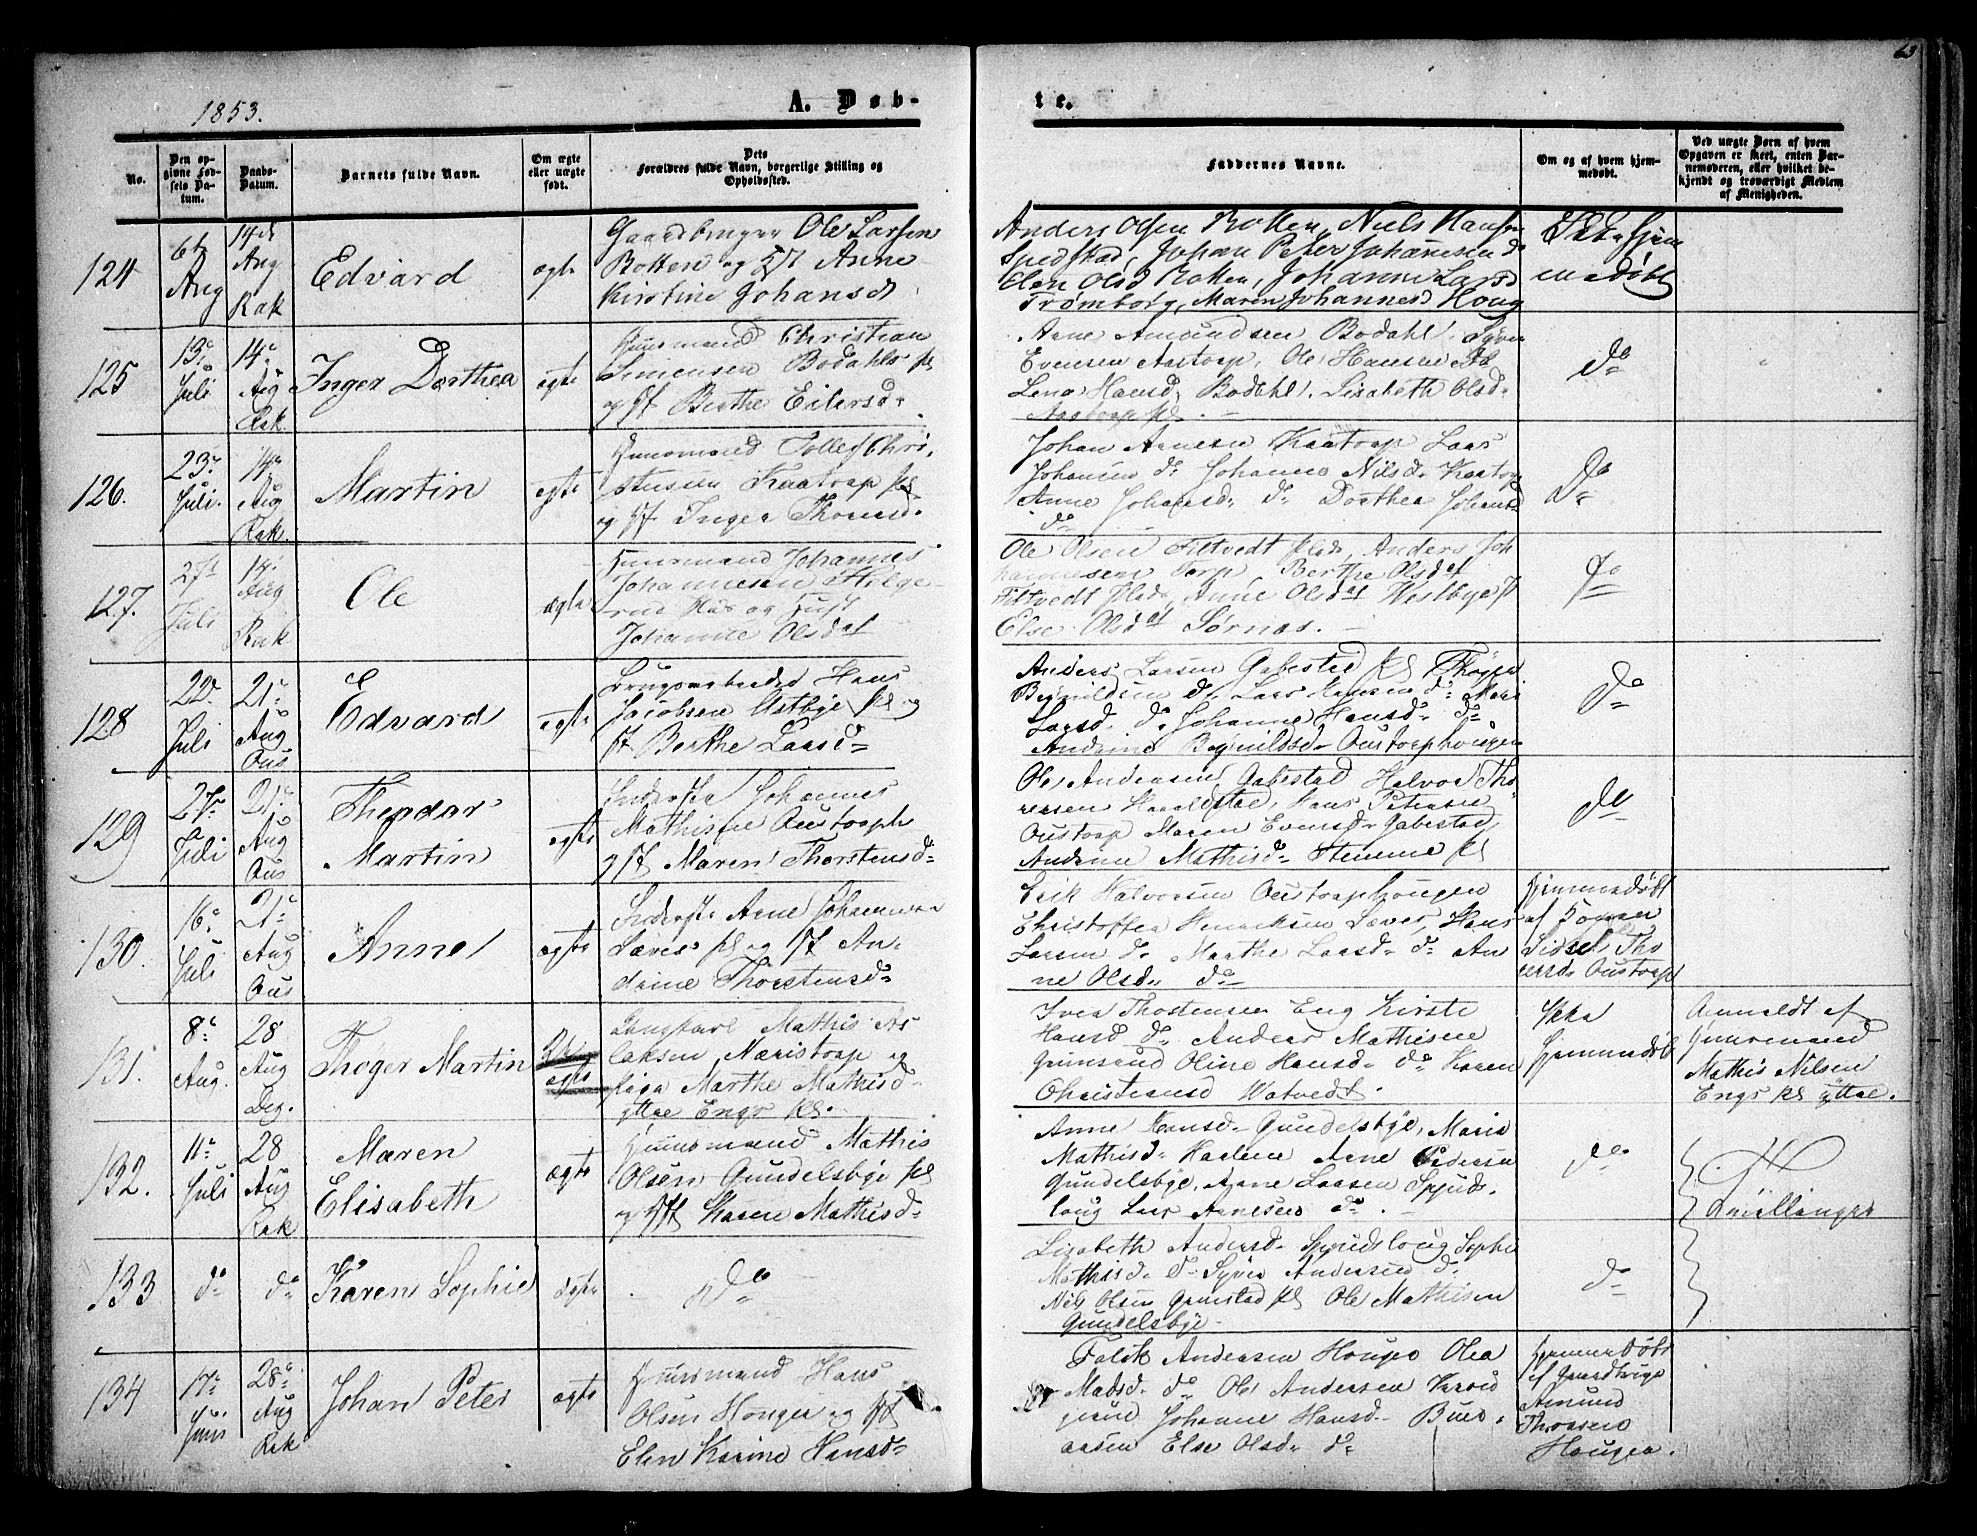 63
1853.
A. Døb-
te.
No.
Den opgivne Fødsels Datum.
Daabs-Datum.
Barnets fulde Navn.
Om ægte eller uægte født.
Dets Forældres fulde Navn, borgerlige Stilling og Opholdssted.
Faddernes Navne.
Om og af hvem hjemmedøbt.
Ved uægte Børn af hvem Opgaven er skeet, enten Barnemoderen, eller hvilket bekjendt og troværdigt Medlem af Menigheden.
124
6te Aug
14de Aug Rak
Edvard
ægte
Gaardbruger Ole Larsen
Rotten og Hst Anne
Kirstine Johansd
Anders Olsen Rotten, Niels Hansen
Spedstad, Johan Peter Johannesen do
Elen Olsd Rotten, Johanne Larsd
Trømborg, Maren Johannesd Houg
Ikke hjem
medøbt
125
13. Juli
14. Aug Rak
Inger Dorthea
ægte
Huusmand Christian
Simensen Bodahls pl
og Hst Berthe Eilersd.
Arne Amundsen Bodahl. Syver
Evensen Aastorp, Ole Hansen
Lena Hansd. Bodahl. Lisabeth Olsd.
Aastorp pl. —
do
126.
23. Juli.
14. Aug Rak.
Martin
ægte
Huusmand Tollef Chri,
stensen Kaatorp pl
og Hst. Inger Thoresd.
Johan Arnesen Kaatorp Lars
Johansen do Johanne Nilsd. Kaatorp
Anne Johansd. do Dorthea Johansd
do
do
127.
27 Juli
14. Aug Rak
Ole
ægte
Huusmand Johannes
Johannesen Holge
rud Plds og Hust
Johanne Olsdat
Ole Olsen Filtvedt plds, Anders Joh
hannesen Torp Berthe Olsdat
Filtvedt plds, Anne Olsdat Westbye pl
Else Olsdat Sørnæs. —
do
128
22. Juli
21. Aug Ous
Edvard
ægte
Brugsarbeider Hans
Jacobsen Østbye pl og
Hst Berthe Larsd.
Anders Larsen Gabestad pl Thøger
Brynildsen do Lars Hansen do Mari
Larsd. do Johanne Hansd. do
Andrine Brynildsd. Oustorphougen
do
129
27. Juli
21. Aug Ous
Theodor
Martin
ægte
Inderste Johannes
Mathisen Oustorp
og Hst Maren Thorstensd.
Ole Andersen Gabestad Halvor Tho
resen Haraldstad, Hans Petersen
Oustorp Maren Evensd. Gabestad,
Andrine Mathisd. Stemme pl
do
130.
16. Juli
21. Aug Ous
Anne
ægte
Inderste Arne Johannesen
Løvers pl og Hst An,
drine Thorstensd.
Erik Halvorsen Oustorphougen
Christoffer Henriksen Løver, Hans
Larsen do Marthe Larsd. do An
ne Olsd. do
Hjemmedøbt
af
Sidsel Tho
resd. Oustorp
131.
8. Aug.
28 Aug Deg.
Thøger Martin
ægte
Ungkarl Mathis As
laksen Næristorp og
Pige Marthe Mathisd.
yttre Engs pl.
Iver Thostensen Eng Kirste
Hansd do Anders Mathisen
Grimsrud Oline Hansd. do Karen
Christiansd Watvedt.
Ikke
hjemmedøbt
Anmeldt af
Huusmand
Mathis Nilsen
Engs pl yttre.
132.
11. Juli
28 Aug Rak
Maren
Elisabeth
ægte
Huusmand Mathis
Olsen Gundelsbye pl
og Hst Karen Mathisd.
Anne Hansd. Gundelsbye, Maria
Mathisd. Haslene Arne Pedersen
Gundelsbye, Arne Larsen Spjuds
loug Lars Arnesen do. —
do
Tvillinger
133
do
do
Karen Sophie
ægte
do
Lisabeth Andersd. Spjudsloug Sophie
Mathisd. do Syver Andersen do
Nils Olsen Grimstad pl Ole Mathisen
Gundelsbye.
do
134
17. Juni
28. Aug Rak
Johan Peter
ægte
Huusmand Hans
Olsen Houger og Hst
Elen Karine Hansd.
Falik Andersen Houger Olea
Madsd. do Ole Andersen
Johanne Hansd.
Else Olsd. do
Hjemmedøbt
af Gaardbruger
Amund
Thoresen
Houger.